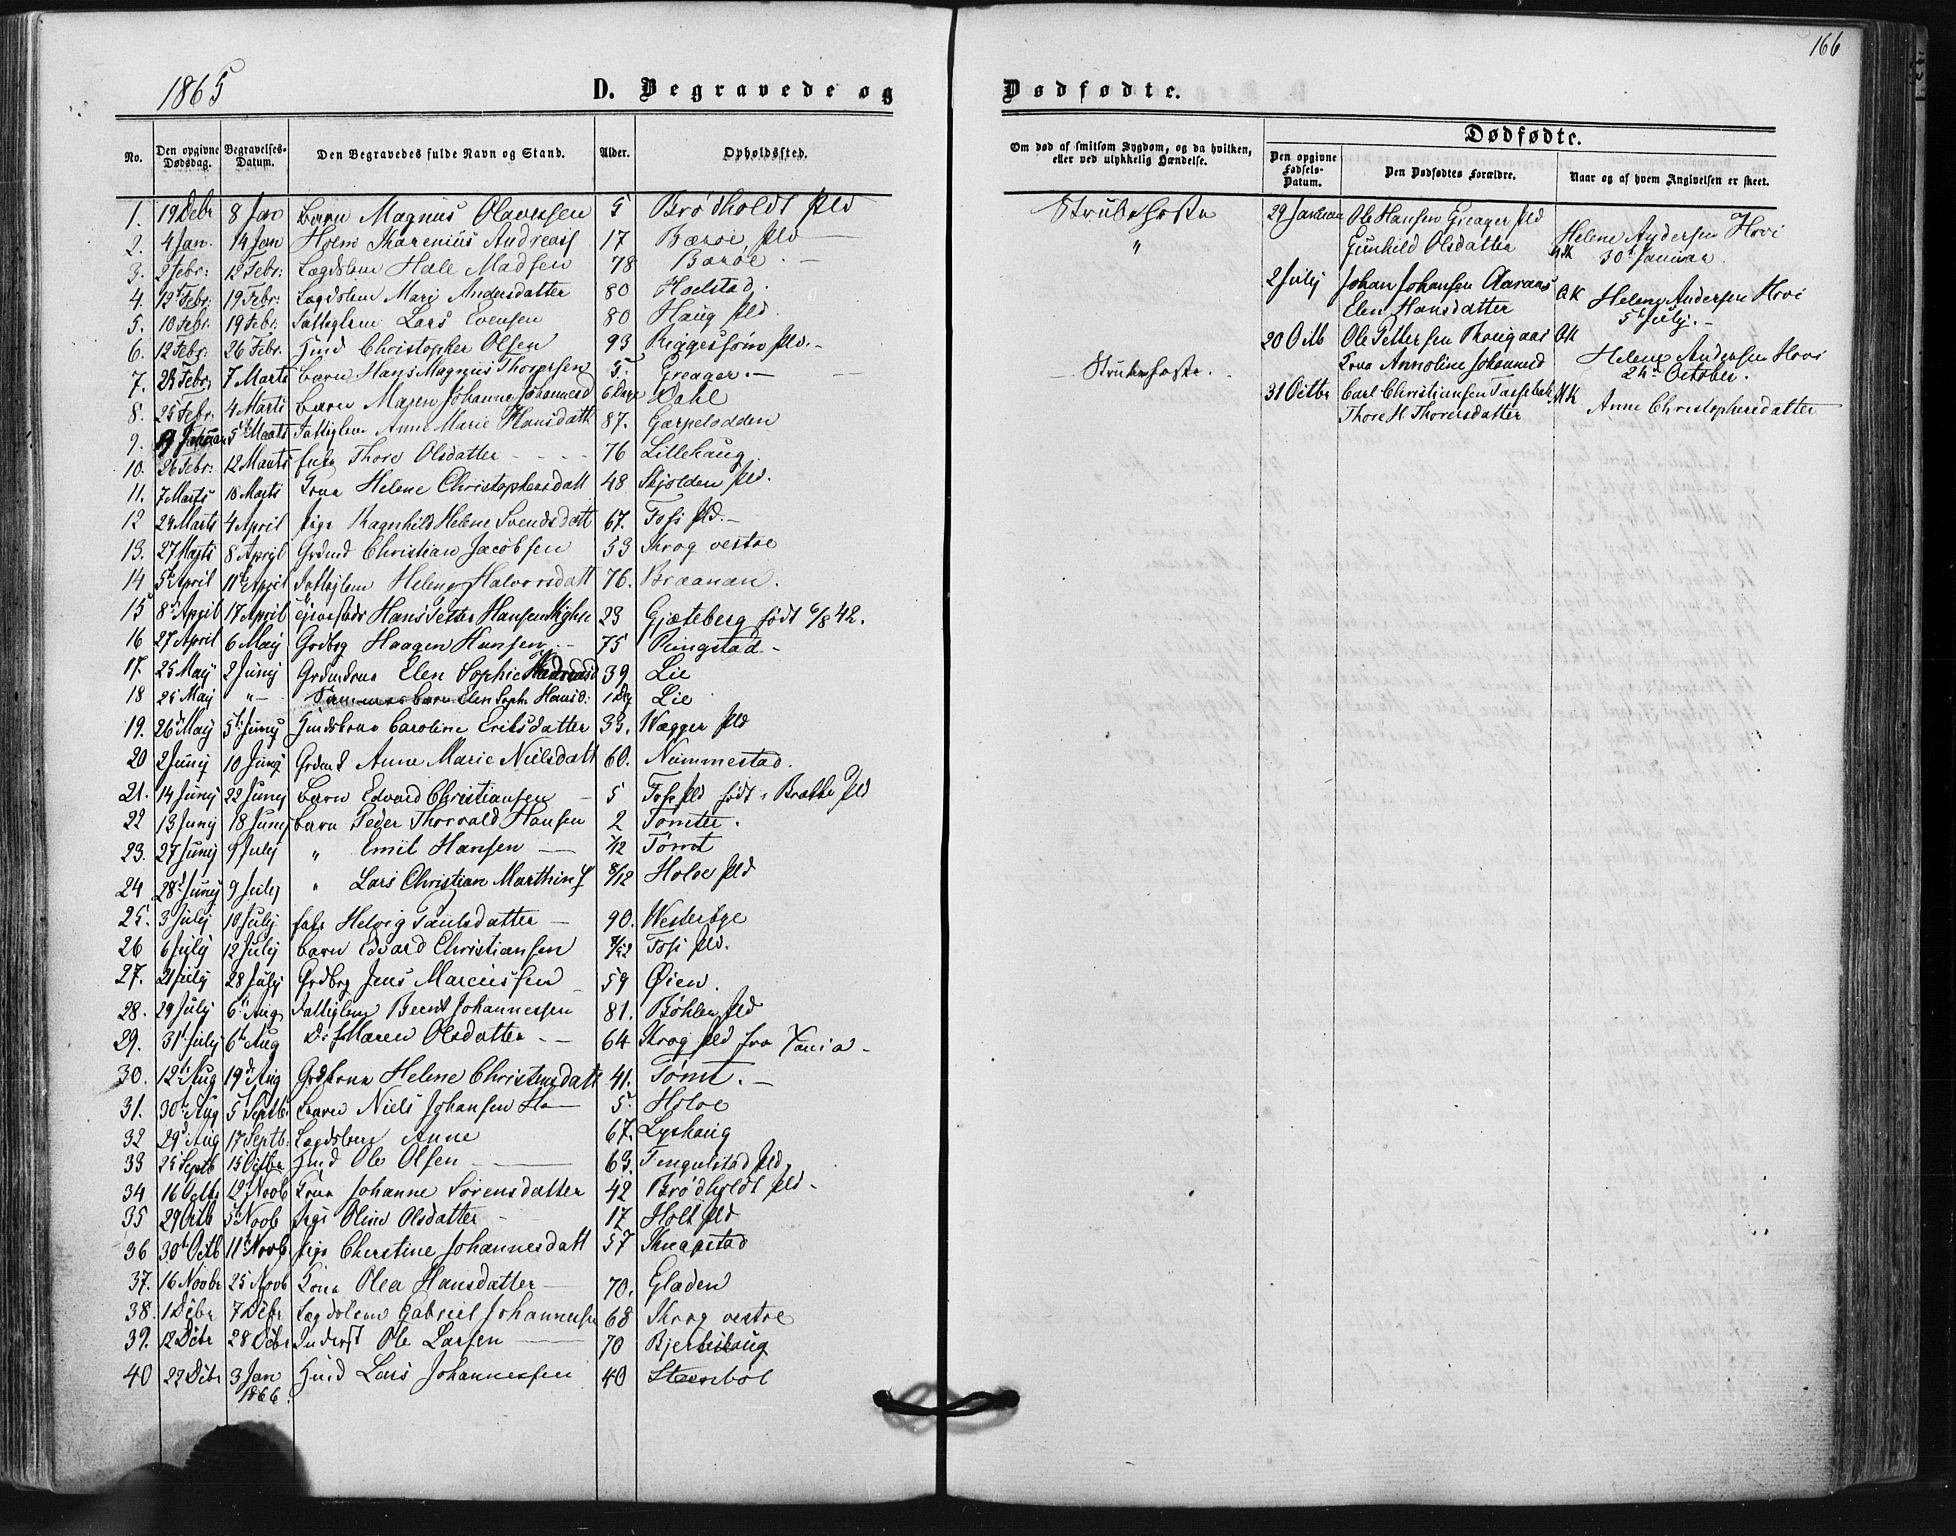 166
1865 D. Begravede og Dødfødte.
No. Den opgivne Dødsdag. Begravelses-Datum. Den Begravedes fulde Navn og Stand. Alder. Opholdssted.
Om død af smitsom Sygdom, og da hvilken, eller ved ulykkelig Hændelse.
Dødfødte.
Den opgivne Fødsels-Datum. Den Dødfødtes Forældre. Naar og af hvem Angivelsen er skeet.
1. 19 Debr 8 Jan Barn Magnus Olavessen 5 Brødholdt Pld Strubehoste
2. 4 Jan. 14 Jan Karenius 17 Barøe Pld "
3. 2 Febr: 12 Febr: Lægdslem Hale Madsen 78 Barøe. -
4. 12t Febr: 19 Febr: Lægdslem Mari Andersdatter 80 Hoelstad.
5. 10 Febr. 19 Febr: Fattiglem Lars Evensen 80 Haug Pld
6. 12 Febr. 26 Febr. Husd Christopher Olsen 93 Pld. -
7. 23 Febr. 7 Marts barn Hans Magnus Thorersen 5. Greager. - Strubehoste.
8. 25 Febr. 4 Marts Barn Maren Johanne Johannesd 6 Dage Dahl
9. Januar 5 Marts Fattiglem Anne Marie Hansdatt 87. Garpelodden
10. 26 Febr: 12 Marts Thore Olsdatter - - - - 76 Lillehaug.
11. 7 Marts 18 Marts Kona Helene Christophersdatt 48 Skjolden Pld.
12 24 Marts 4 April Pige Ragnhild Helene Svendsdatt 67. Foss Pld. -
13. 27 Marts 8 April Grdmd Christian Jacobsen 53 Krog vestre
14 5t April 11te April Fattiglem Helene Halvorsdatt 76. Braanan.
15 8d April 17 April Hans Petter Hansen 23 Gjæteberg født 6/8 42.
16 27 April 6 Maij Grdbrg Haagen Hansen - 75 Ringstad -
17. 25 Maij 2 Junij Grdmdkona Elen Sophie 39 Lie
18 25 Maij " - barn Elen Soph Hansd: 1 Dg Lie
19. 26d Maij 5t Junij Husdskona Caroline Eriksdatter 33. Wægger Pld
20 2 Junij 10 Junij Anne Marie Nielsdatt 60. Nummestad.
21. 14 Junij 22 Junij Barn Edvard Christiansen - 5 Foss Pld født i Brække Pld
22 13 Junij 18 Junij barn Peder Thorvald Hansen 2 Tomter.
23. 27 Junij 9 Julij " Emil Hansen - Tømt
24 28d Junij 9 Julij " Lars Christian Marthin 8/12 Holoe Pld
25. 3 Julij 10 Julij Helvig Paulsdatter - 90. Westerbye
26 6 Julij 12 Julij barn Edvard Christiansen Foss Pld.
27. 21 Julij 28 Julij Grdbrg Jens Marcussen 59 Øien.
28. 29 Julij 6t Aug Fattiglem Bernt Johannessen 81. Bøhlen Pld
29. 31t Julij 6t Aug Maren Olsdatter - - 64 Krog Pld fra Xania -
30. 12t Aug 19d Aug Grdkona Helene Christensdatt 41. Tømt. -
31. 30t Aug 5t Septb: Barn Niels Johansen Ho- 5. Holoe
32 29d Aug 17 Septb. Lægdslem Anne 67. Lyshaug
33 25 Septb 15 Octbr Husd Ole Olsen - 63. Fingulstad Pld.
34 16 Octb 12t Novb Kona Johanne Sørensdatter 42 Brødholdt Pld -
35 29 Octb 5t Novb Pige Oline Olsdatter - 17 Holt Pld
36 30t Octb 11t Novb Pige Cherstine Johannesdatt 57 Knapstad
37. 16 Novbr 25 Novb Kona Olea Hansdatter - 70. Gladen
38. 1 Debr 7 Debr Lægdslem Gabriel Johannessen 68 Krog vestre
39. 12 Debr 28 Debr Inderst Ole Larsen - 70 Bjerkehaug
40 22 Debr 3 Jan 1866. Husd Lars Johannessen 40 Steenbøl
29 Januar Ole Hansen Greager Pld
Gunhild Olsdatter
Helene Andersen Hovi
30t Januar.
2 Julij Johan Johansen Aaraas
Elen Hansdatter
QK Helene Andersen Hovi
5t Julij. -
20 Octb Ole Pettersen
Kona Annoline Johannesd
QK Helene Andersen Hovi
24de October.
31 Octbr Carl Christiansen
Thore H Thorersdatter
MK Anne Christophersdatter